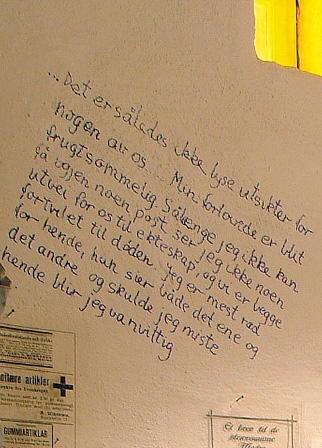 ...Det er således ikke lyse utsikter for
nogen av os... Min forlovede er blit
frugtsommelig. Sålænge jeg ikke kan
få igjen noen post ser jeg ikke noen
utvei for os til ekteskap, og vi er begge
fortvilet til døden. Jeg er mest ræd
for hende, hun sier både det ene og
det andre og skulde jeg miste
hende blir jeg vanvittig
artikler
GUMMIARTIKLAR
Et brev til de